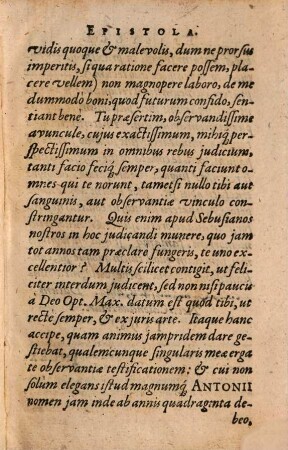 EPISTOLA.
vidis quoque & malevolis, dum ne prorsus
imperitis, si qua ratione facere possem, pla-
cere vellem) non magnopere laboro, de me
dummodo boni, quod futurum confido, sen-
tiant bene. Tu præsertim, observandissime
avuncule, cujus exactissimum, mihiq; per-
spectissimum in omnibus rebus judicium,
tanti facio feciq; semper, quanti faciunt o-
mnes qui te norunt, tametsi nullo tibi aut
sanguinis, aut observantiæ vinculo con-
stringantur. Quis enim apud Sebusianos
nostros in hoc judicandi munere, quo jam
tot annos tam præclare fungeris, te uno ex-
cellentior? Multis scilicet contigit, ut feli-
citer interdum judicent, sed non nisi paucis
a Deo Opt. Max. datum est quod tibi, ut
recte semper, & ex juris arte. Itaque hanc
accipe, quam animus jampridem dare ge-
stiebat, qualemcunque singularis meæ erga
te observantiæ testificationem; & cui non
solum elegans istud magnumq; ANTONII
nomen jam inde ab annis quadraginta de-
beo,